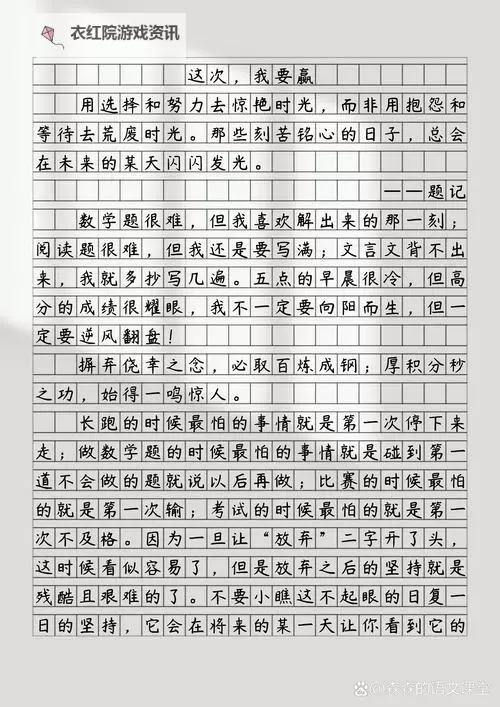 衣红院游戏资讯
这次，我要赢
用选择和努力去惊艳时光，而非用抱怨和
等待去荒废时光。那些刻苦铭心的日子，总会
在未来的某天闪闪发光。
——题记
数学题很难，但我喜欢解出来的那一刻；
阅读题很难，但我还是要写满；文言文背不出
来，我就多抄写几遍。五点的早晨很冷，但高
分的成绩很耀眼，我不一定要向阳而生，但一
定要逆风翻盘！
摒弃侥幸之念，必取百炼成钢；厚积分秒
之功，始得一鸣惊人。
长跑的时候最怕的事情就是第一次停下来
走；做数学题的时候最怕的事情就是碰到第一
道不会做的题就说以后再做；比赛的时候最怕
的就是第一次输；考试的时候最怕的就是第一
次不及格。因为一旦让“放弃”二字开了头，
这时候看似容易了，但是放弃之后的坚持就是
残酷且艰难的了。不要小瞧这不起眼的日复一
日的坚持，它会在将来的某一天让你看到它的
@森森的语文课堂